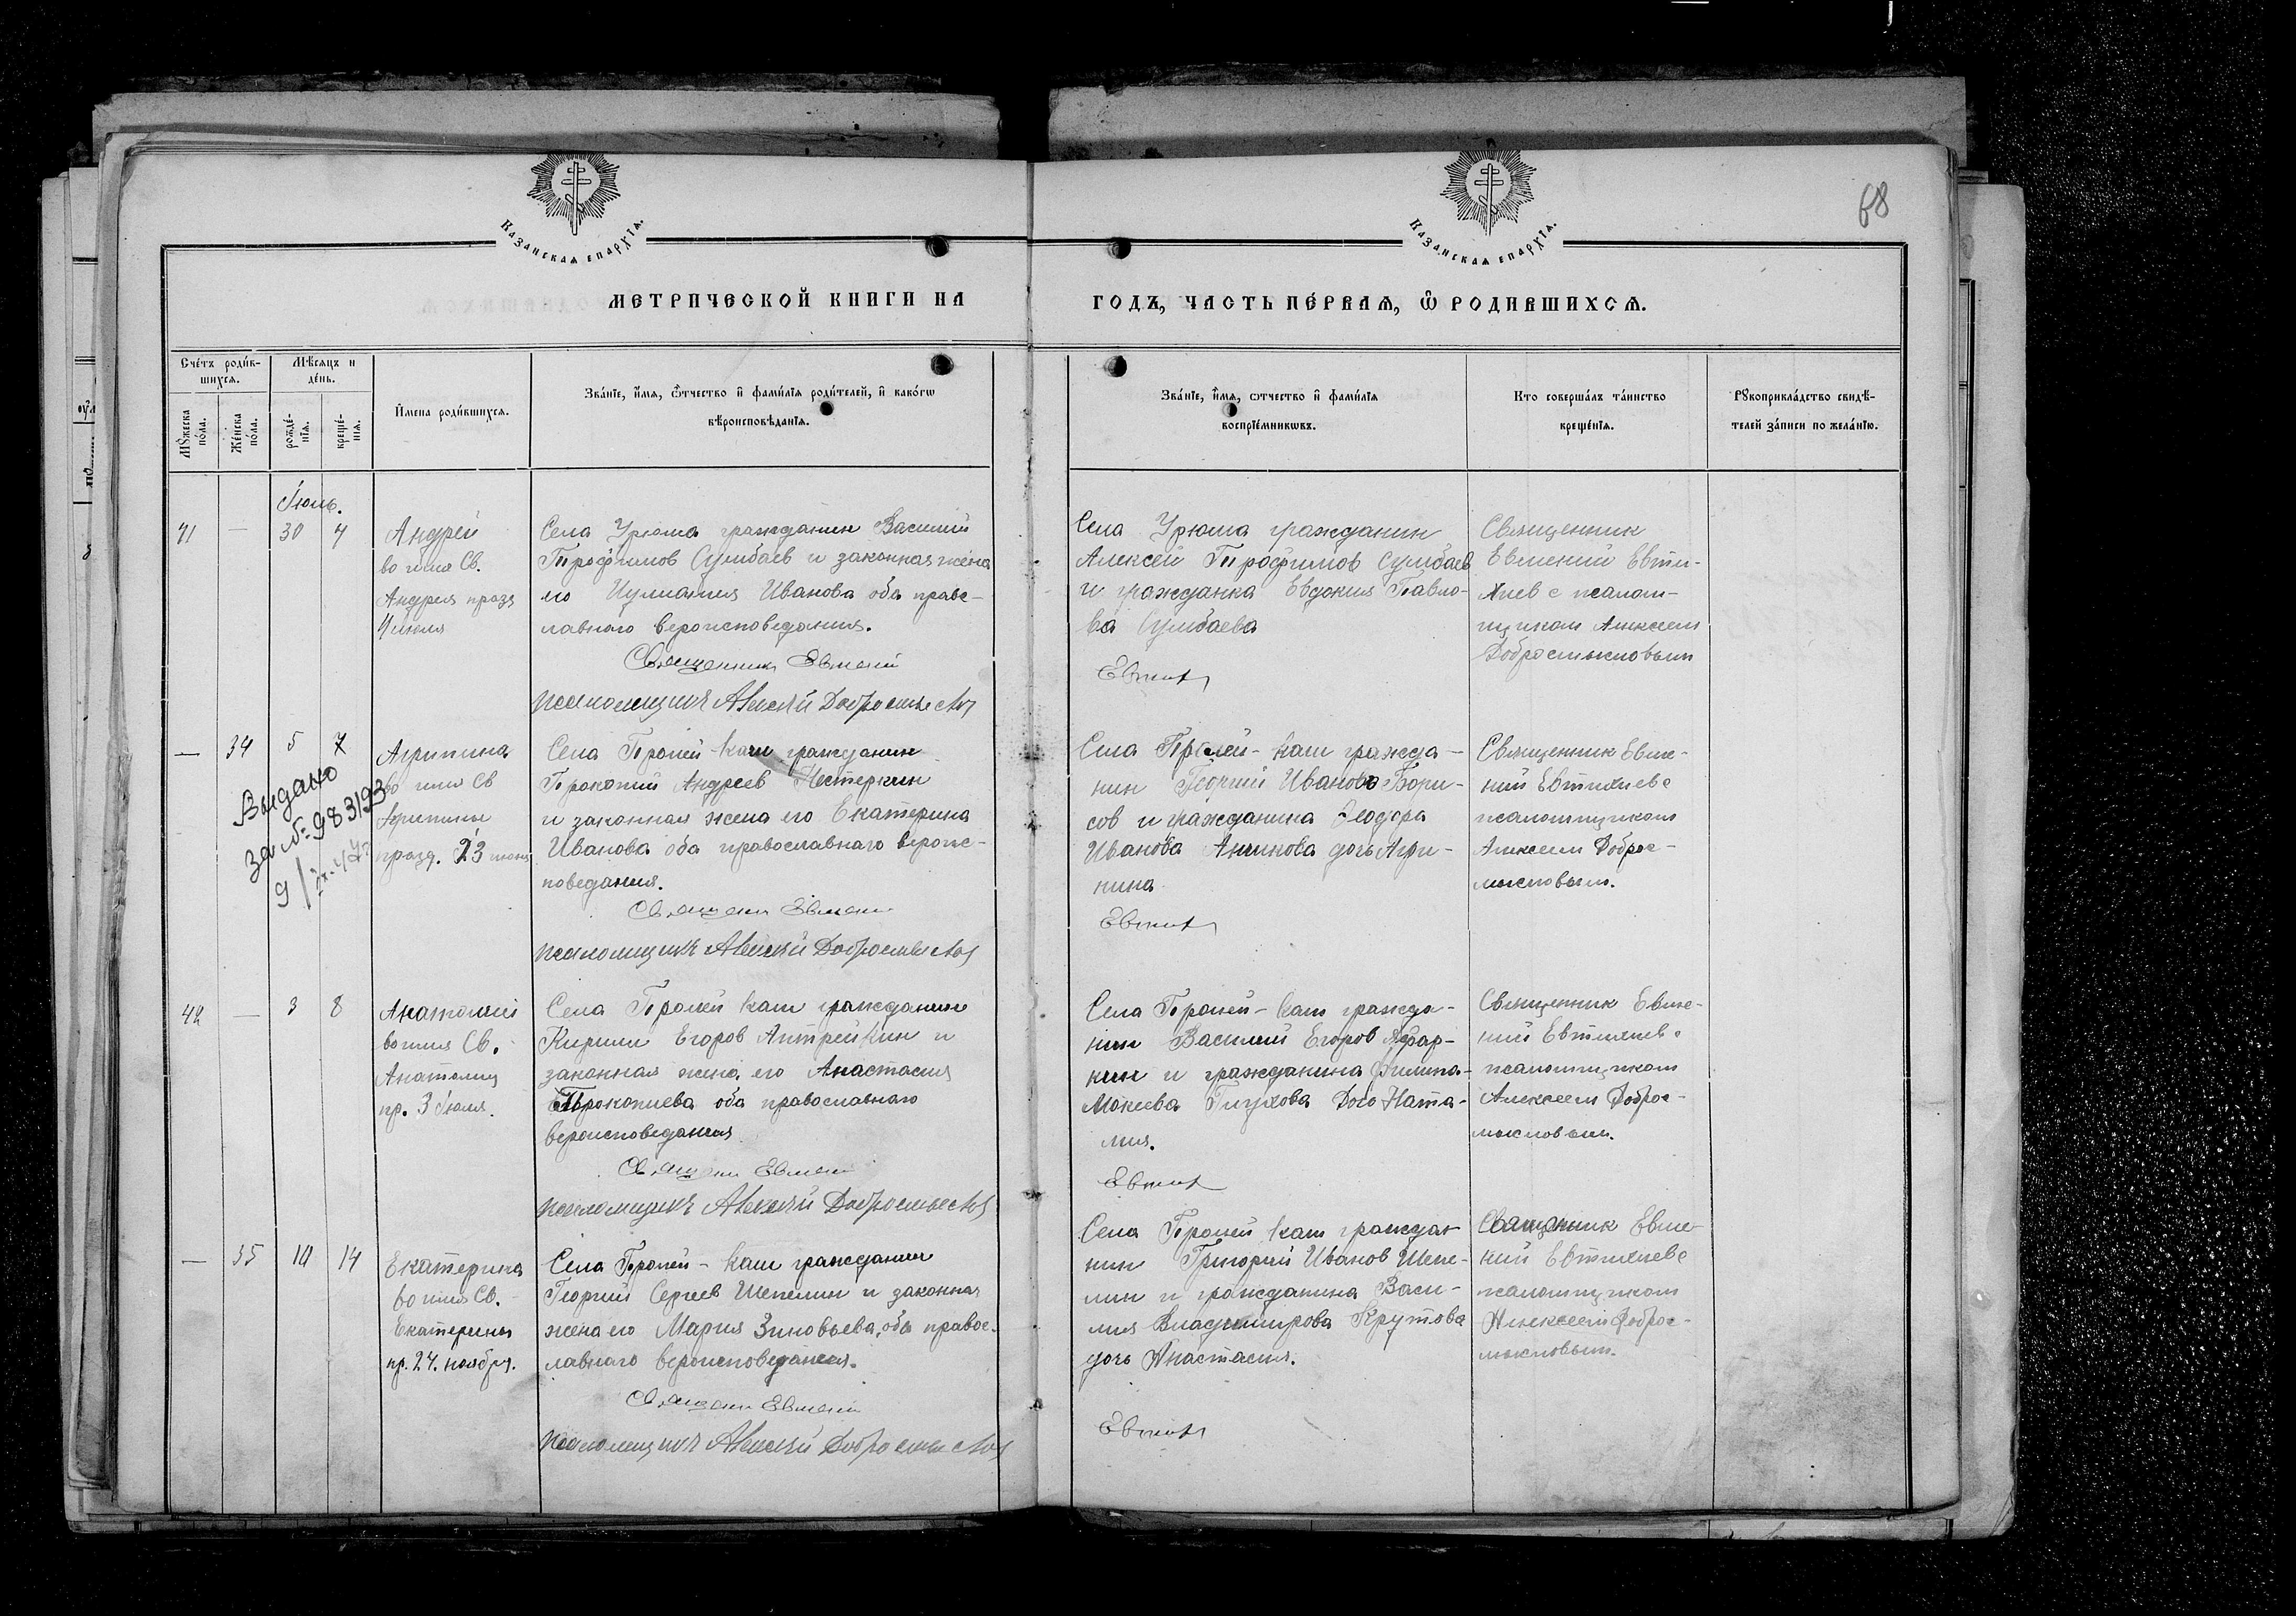 68
Казанская епархїѧ.
Казанская епархїѧ.
МЕТРИЧЕСКОЙ КНИГИ НА
ГОДЪ, ЧАСТЬ ПЕ́РВАЯ, Ѡ҆ РОДИВШИХСЯ.
Сче́тъ роди́в-
шихся.
Мѣ́сяцъ и
де́нь.
Мꙋ́жеска
по́ла.
Же́нска
по́ла.
рожде́-
нїя.
креще́-
нїя.
И҆мена роди́вшихся.
Зва́нїе, и҆́мя, ѻ҆́тчество и҆ фами́лїя роди́телей, и҆ како́гѡ
вѣроисповѣ́данїя.
Зва́нїе, и҆́мя, ѻ҆тчество и҆ фами́лїя
воспрїе́мникѡвъ.
Кто соверша́лъ та́инство
креще́нїя.
Рꙋкоприкла́дство свидѣ́-
телей за́писи по жела́нїю.
Іюль.
41
—
30
4
Андрей
во имя Св.
Андрея празд
4 июля
Села Урюма гражданин Василий
Трофимов Сумбаев и законная жена
его Иулиания Иванова оба правс-
лавнаго вероисповедания.
Священник Евмений
псаломщикъ Алексѣй Добросмыслов
Села Урюма гражданин
Алексей Трофимов Сумбаев
и гражданка Евдокия Павло-
ва Сумбаева
Евтих
Священник
Евмений Евти-
хиев с псалом-
щиком Алексеем
Добросмысловым
—
34
5
7
Агрипина
во имя Св
Агрипины
празд. 23 июня
Выдано
за № 983193
9/
Села Пролей-Каш гражданин
Прокопий Андреев Нестеркин
и законная жена его Екатерина
Иванова оба православнаго вероис-
поведания.
Священн Евмени
псаломщикъ Алексѣй Добросмыслов
Села Пролей-Каш гражда-
нин Георгий Иванова Бори-
сов и гражданина Феодора
Иванова Аникова дочь Агри-
пина
Евтих
Священник Евме-
ний Евтихиев с
псаломщиком
Алексеем Доброс-
мысловым.
42
—
3
8
Анатолий
во имя Св.
Анатолия
пр. 3 Іюля.
Села Пролей Каш гражданин
Кирилл Егоров Антрейкин и
законная жена его Анастасия
Прокопиева оба православнаго
вероисповедания
Священн Евмени
псаломщикъ Алексѣй Добросмыслов
Села Пролей-Каш гражда-
нин Василий Егоров
и гражданина Филипа
Мокеева Глухова Дочь Ната-
лия.
Евтих
Священник Евме-
ний Евтихиев с
псаломщиком
Алексеем Доброс-
мысловым.
—
35
10
14
Екатерина
во имя Св.
Екатерины
пр. 24. ноября.
Села Пролей-Каш гражданин
Георгий Сергеев Шепелин и законная
жена его Мария Зиновьева, оба правос-
лавнаго вероисповедания.
Священн Евмени
псаломщикъ Алексѣй Добросмыслов
Села Пролей Каш граждан
нин Григорий Иванов Шепе-
лин и гражданина Васи-
лия Владимирова Крутова
дочь Анастасия.
Евтих
Священник Евме-
ний Евтихиев с
псаломщиком
Алексеем Доброс-
мысловым.